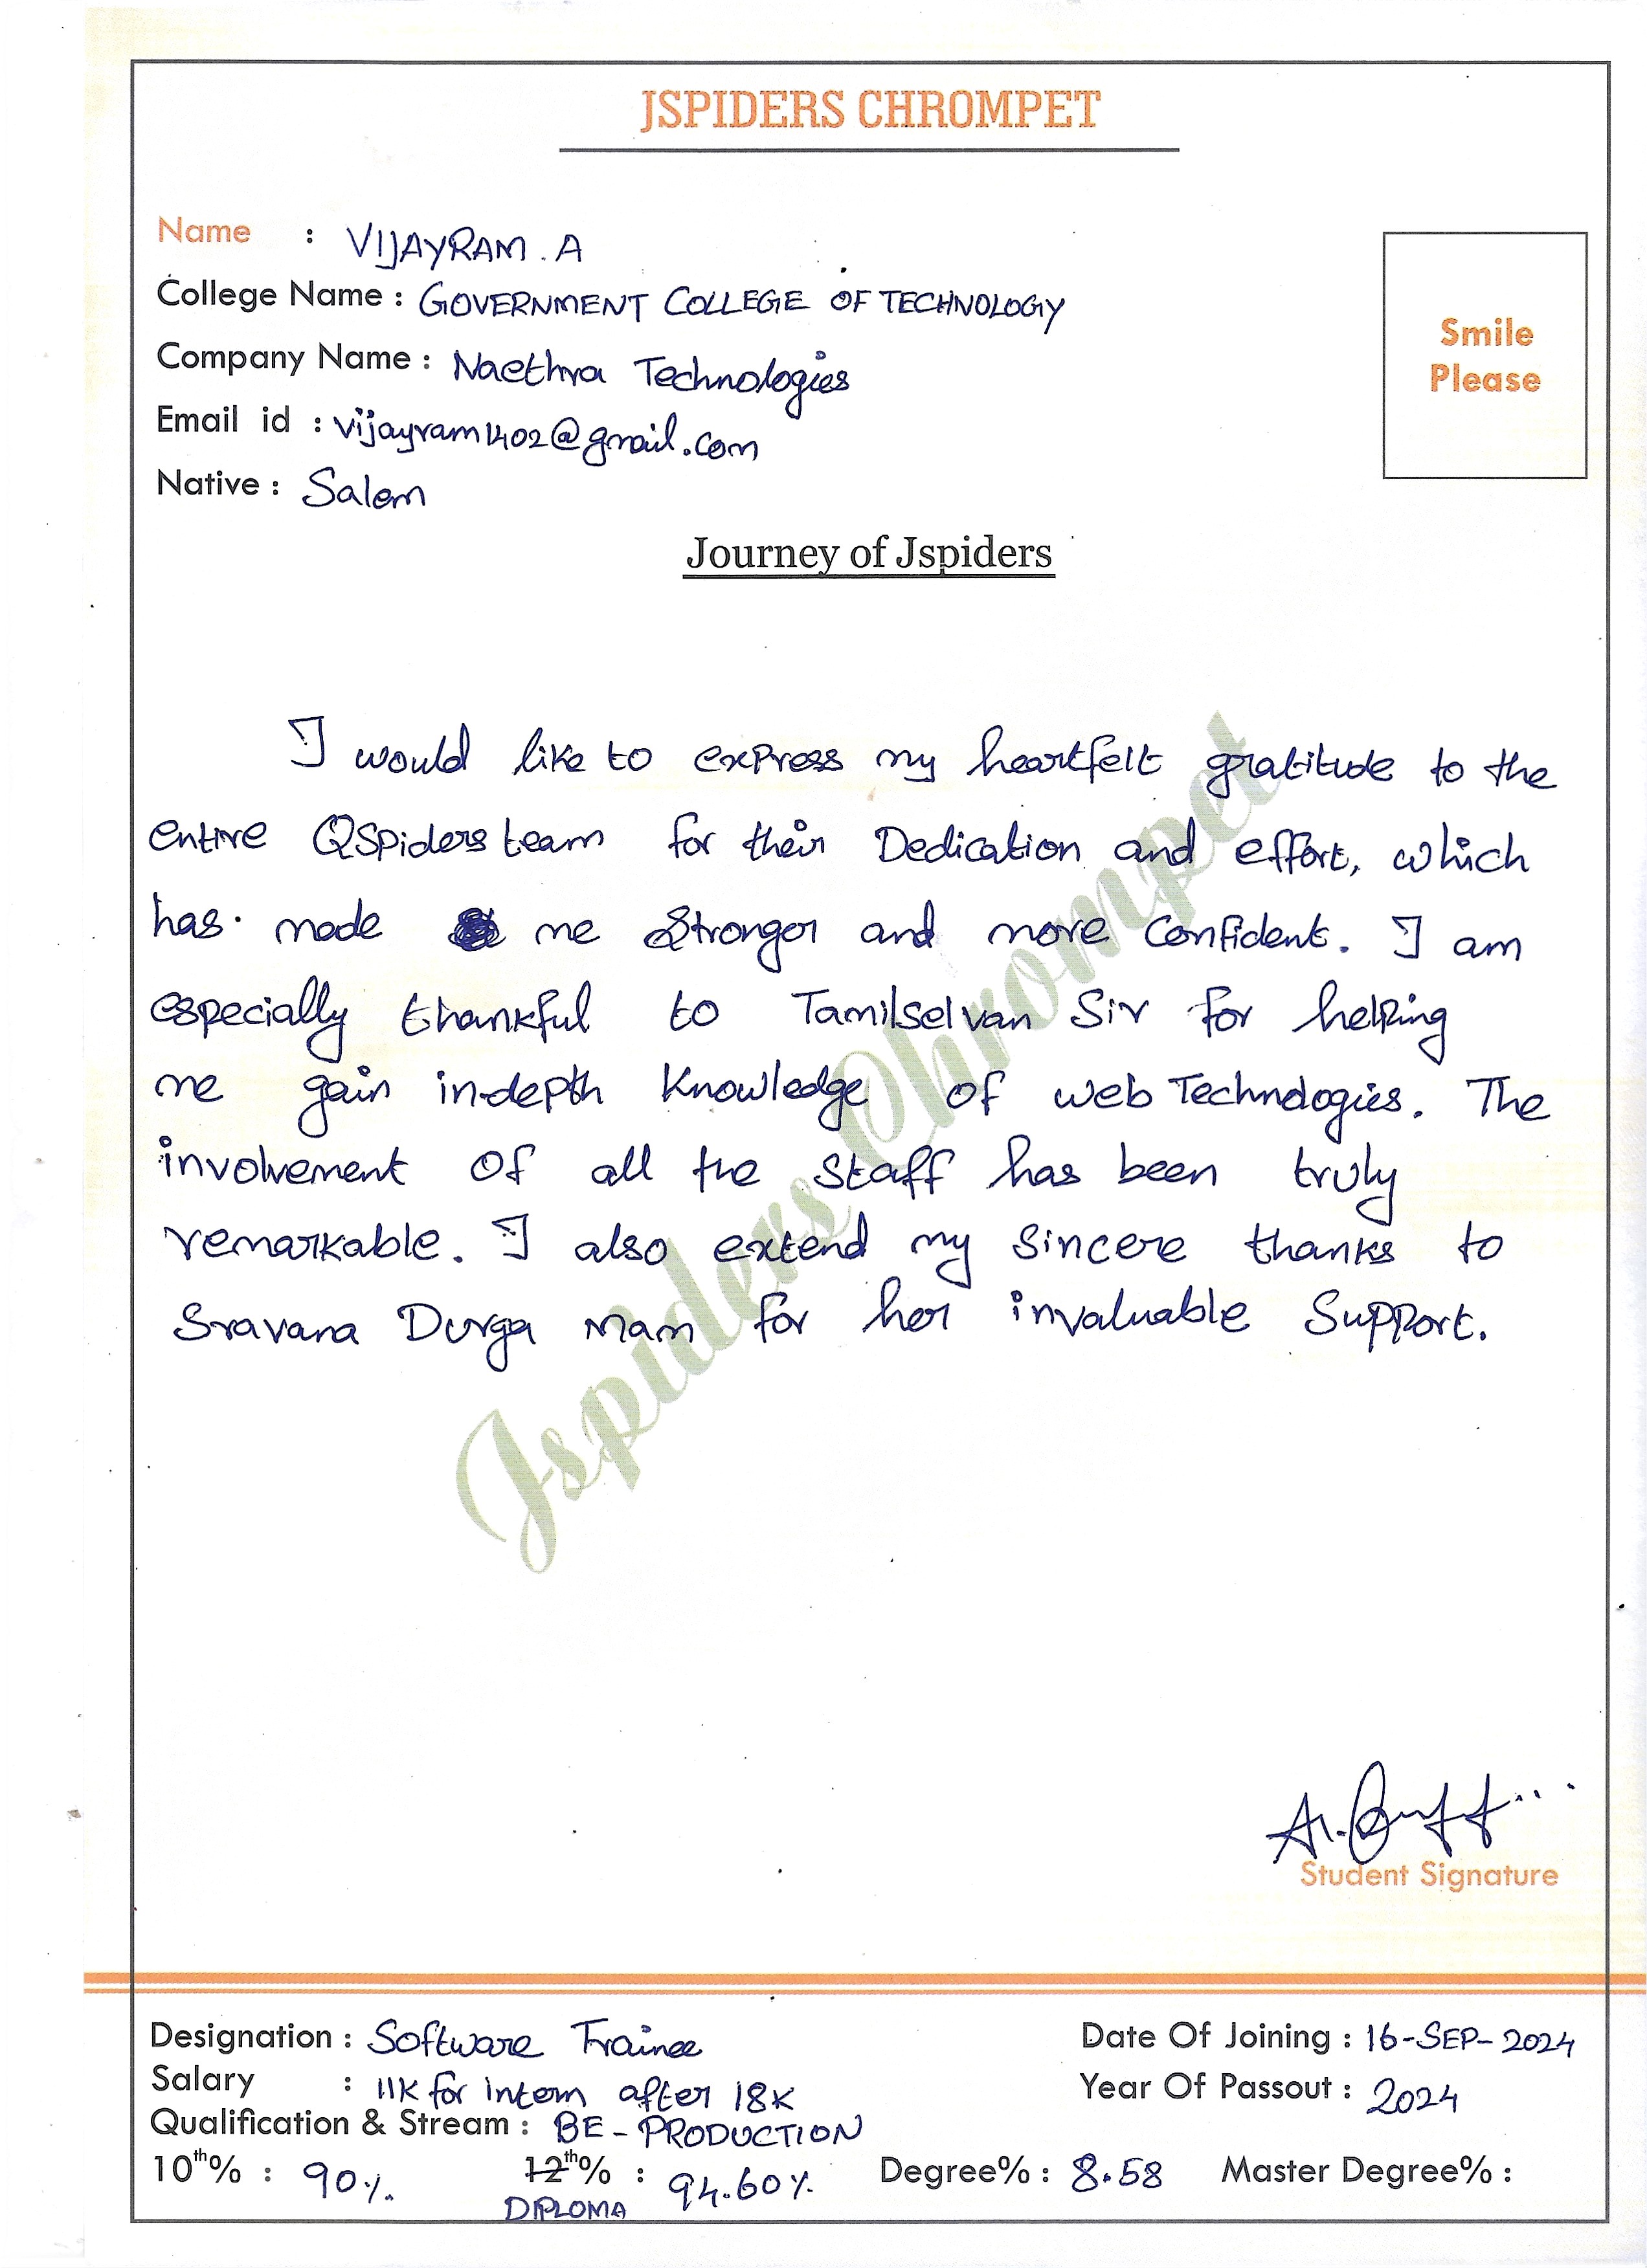 JSPIDERS CHROMPET
Name : VIJAYRAM. A
College Name : GOVERNMENT COLLEGE OF TECHNOLOGY
Company Name : Naethra Technologies
Email id : vijayram1402@gmail.com
Native : Salem
Smile
Please
Journey of Jspiders
I would like to express my heartfelt gratitude to the
entire QSpiders team for their Dedication and effort, which
has made me stronger and more confident. I am
especially thankful to Tamilselvan Sir for helping
me gain in-depth knowledge of web Technologies. The
involvement of all the staff has been truly
remarkable. I also extend my sincere thanks to
Sravana Durga Mam for her invaluable Support.
Jspiders Chrompet
Student Signature
Designation : Software Trainee
Date Of Joining : 16-SEP-2024
Salary : 11K for intern after 18K
Year Of Passout : 2024
Qualification & Stream : BE - PRODUCTION
10th% : 90%. 12th% : 94.60% Degree% : 8.58 Master Degree% :
DIPLOMA